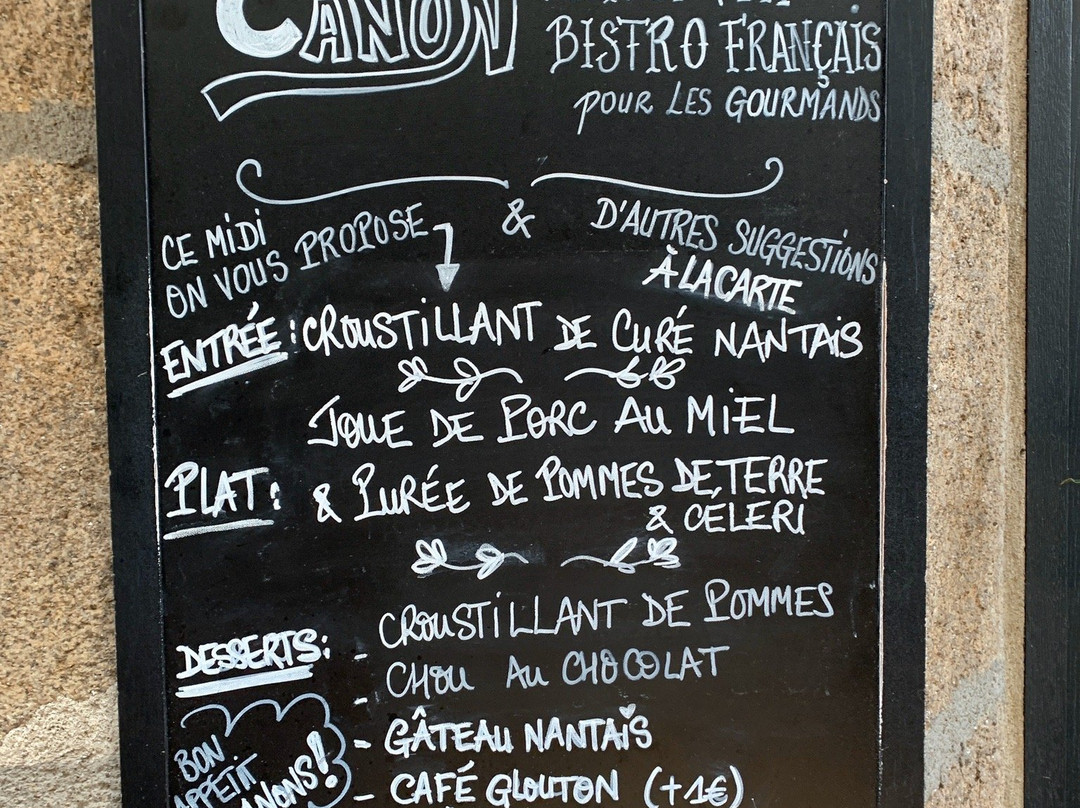 CANON
BISTRO FRANÇAIS
POUR LES GOURMANDS
CE MIDI
ON VOUS PROPOSE
&
D'AUTRES SUGGESTIONS
À LA CARTE
ENTRÉE : CROUSTILLANT DE CURÉ NANTAIS
JOUE DE PORC AU MIEL
PLAT : & PURÉE DE POMMES DE TERRE
& CÉLERI
DESSERTS : - CROUSTILLANT DE POMMES
- CHOU AU CHOCOLAT
- GÂTEAU NANTAIS
- CAFÉ GLOUTON (+1€)
BON
APPÉTIT